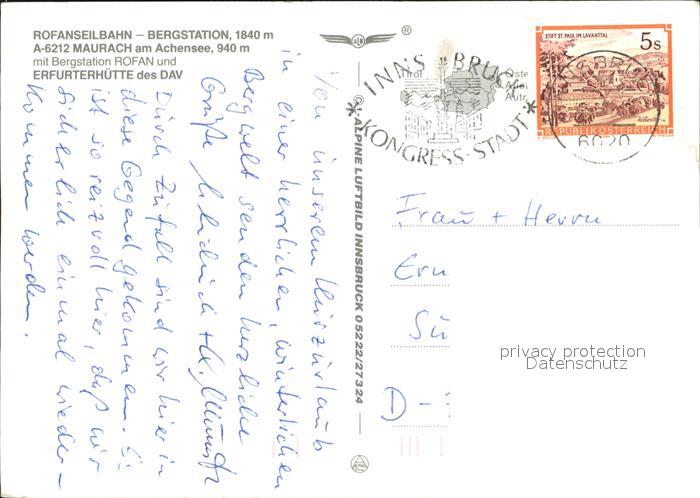 ROFANSEILBAHN – BERGSTATION, 1840 m
A-6212 MAURACH am Achensee, 940 m
mit Bergstation ROFAN und
ERFURTERHÜTTE des DAV
Von unserem Kurzurlaub
in einer herrlichen, winterlichen
Bergwelt senden herzliche
Grüße
Durch Zufall sind wir hier in
diese Gegend gekommen. Es
ist so reizvoll hier, daß wir
sicherlich einmal wieder-
kommen werden.
ALPINE LUFTBILD INNSBRUCK 05222/27324
INNSBRUCK
Tirol
KONGRESS-STADT
STIFT ST. PAUL IM LAVANTTAL
5s
REPUBLIK ÖSTERREICH
6020
Frau + Herrn
D-
privacy protection
Datenschutz